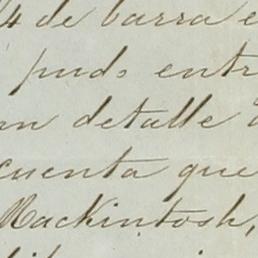 4 de barra e
puds entr
un detalle
cuenta que
Mackintosh,